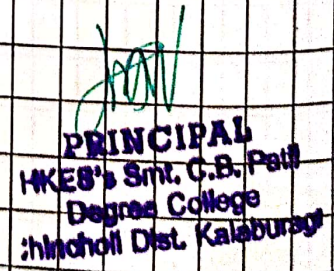 PRINCIPAL
HKES's Smt. C.B. Patil
Degree College
:hincholi Dist. Kalaburagi